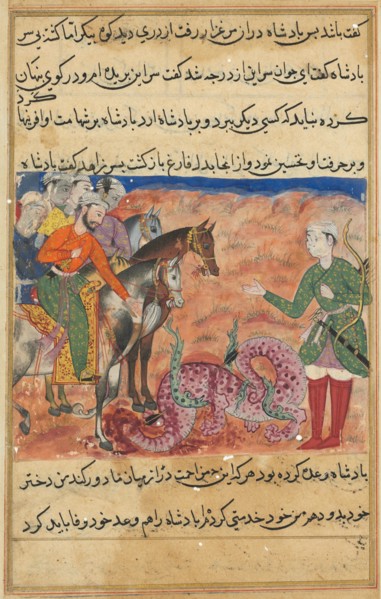 کفت باشد بس بادشاه دراز مرغزار رفت از دری دید کوه بیکر اما کشته بی سر
بادشاه کفت ای جوان سر این از درجه شد کفت سر این بریده ام و در کوی بنهان
کرد
کرده نباید که کسی دیکر ببرد و بر بادشاه ارد بادشاه بر شهامت او افرینها
و بر حرفت او تحسین نمود و از انجا بدل فارغ باز کشت بسر زاهد کفت بادشاه
بادشاه وعده کرده بود هر که این زحمت از میان ما دور کند من دختر
خود بدو دهم من خود خدمتی کردم بادشاه را هم وعده خود وفا باید کرد